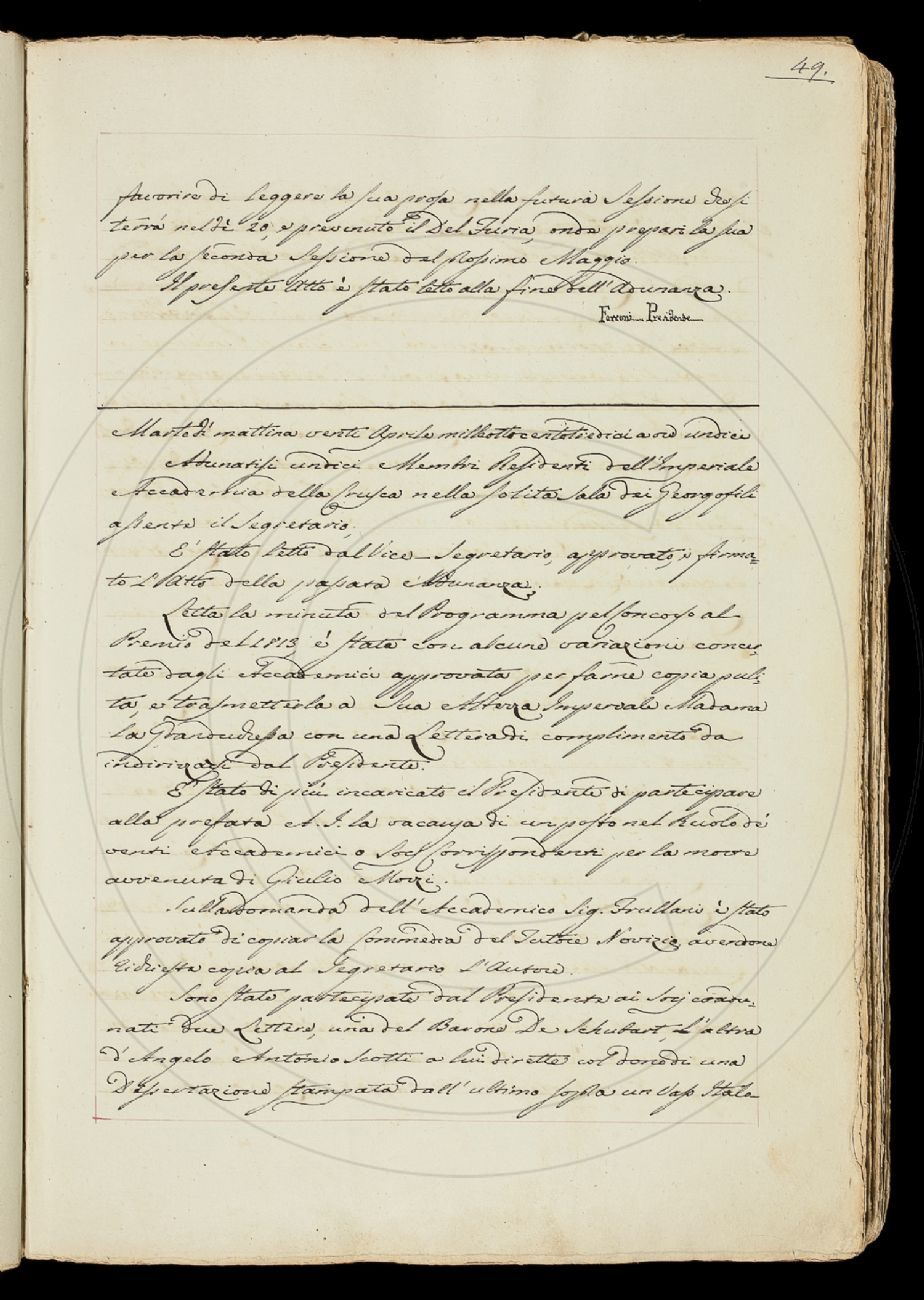 49.
favorire di leggere la sua prosa nella futura Sessione che si
terrà nel dì 20, e prevenuto il Del Furia, onde prepari la sua
per la seconda Sessione del prossimo Maggio.
Il presente Atto è stato letto alla fine dell'Adunanza.
Ferroni Presidente
Martedì mattina venti Aprile milleottocentotredici a ore undici
Adunatisi undici Membri Residenti dell'Imperiale
Accademia della Crusca nella solita Sala dei Georgofili
assente il Segretario,
E' stato letto dal Vice-Segretario, approvato, e firma=
to l'Atto della passata Adunanza.
Letta la minuta del Programma pel Concorso al
Premio del 1813 è stata con alcune variazioni
tate dagli Accademici approvata per farne copia puli=
ta, e trasmetterla a Sua Altezza Imperiale Madama
la Granduchessa con una Lettera di complimento da
indirizzarsi dal Presidente.
E' stato di più incaricato il Presidente di partecipare
alla prefata A. I. la vacanza di un posto nel Ruolo de'
venti Accademici o Socj Corrispondenti per la morte
avvenuta di Giulio Mozzi.
Sulla domanda dell'Accademico Sig. Frullani è stato
approvato di copiar la Commedia del Tutore Novizio, avendone
richiesta copia al Segretario l'Autore.
Sono state partecipate dal Presidente ai Socj coadu=
nati due Lettere, una del Barone De Schubart, l'altra
d'Angelo Antonio Scotti a lui dirette col dono di una
Dissertazione stampata dall'ultimo sopra un Vaso Italo